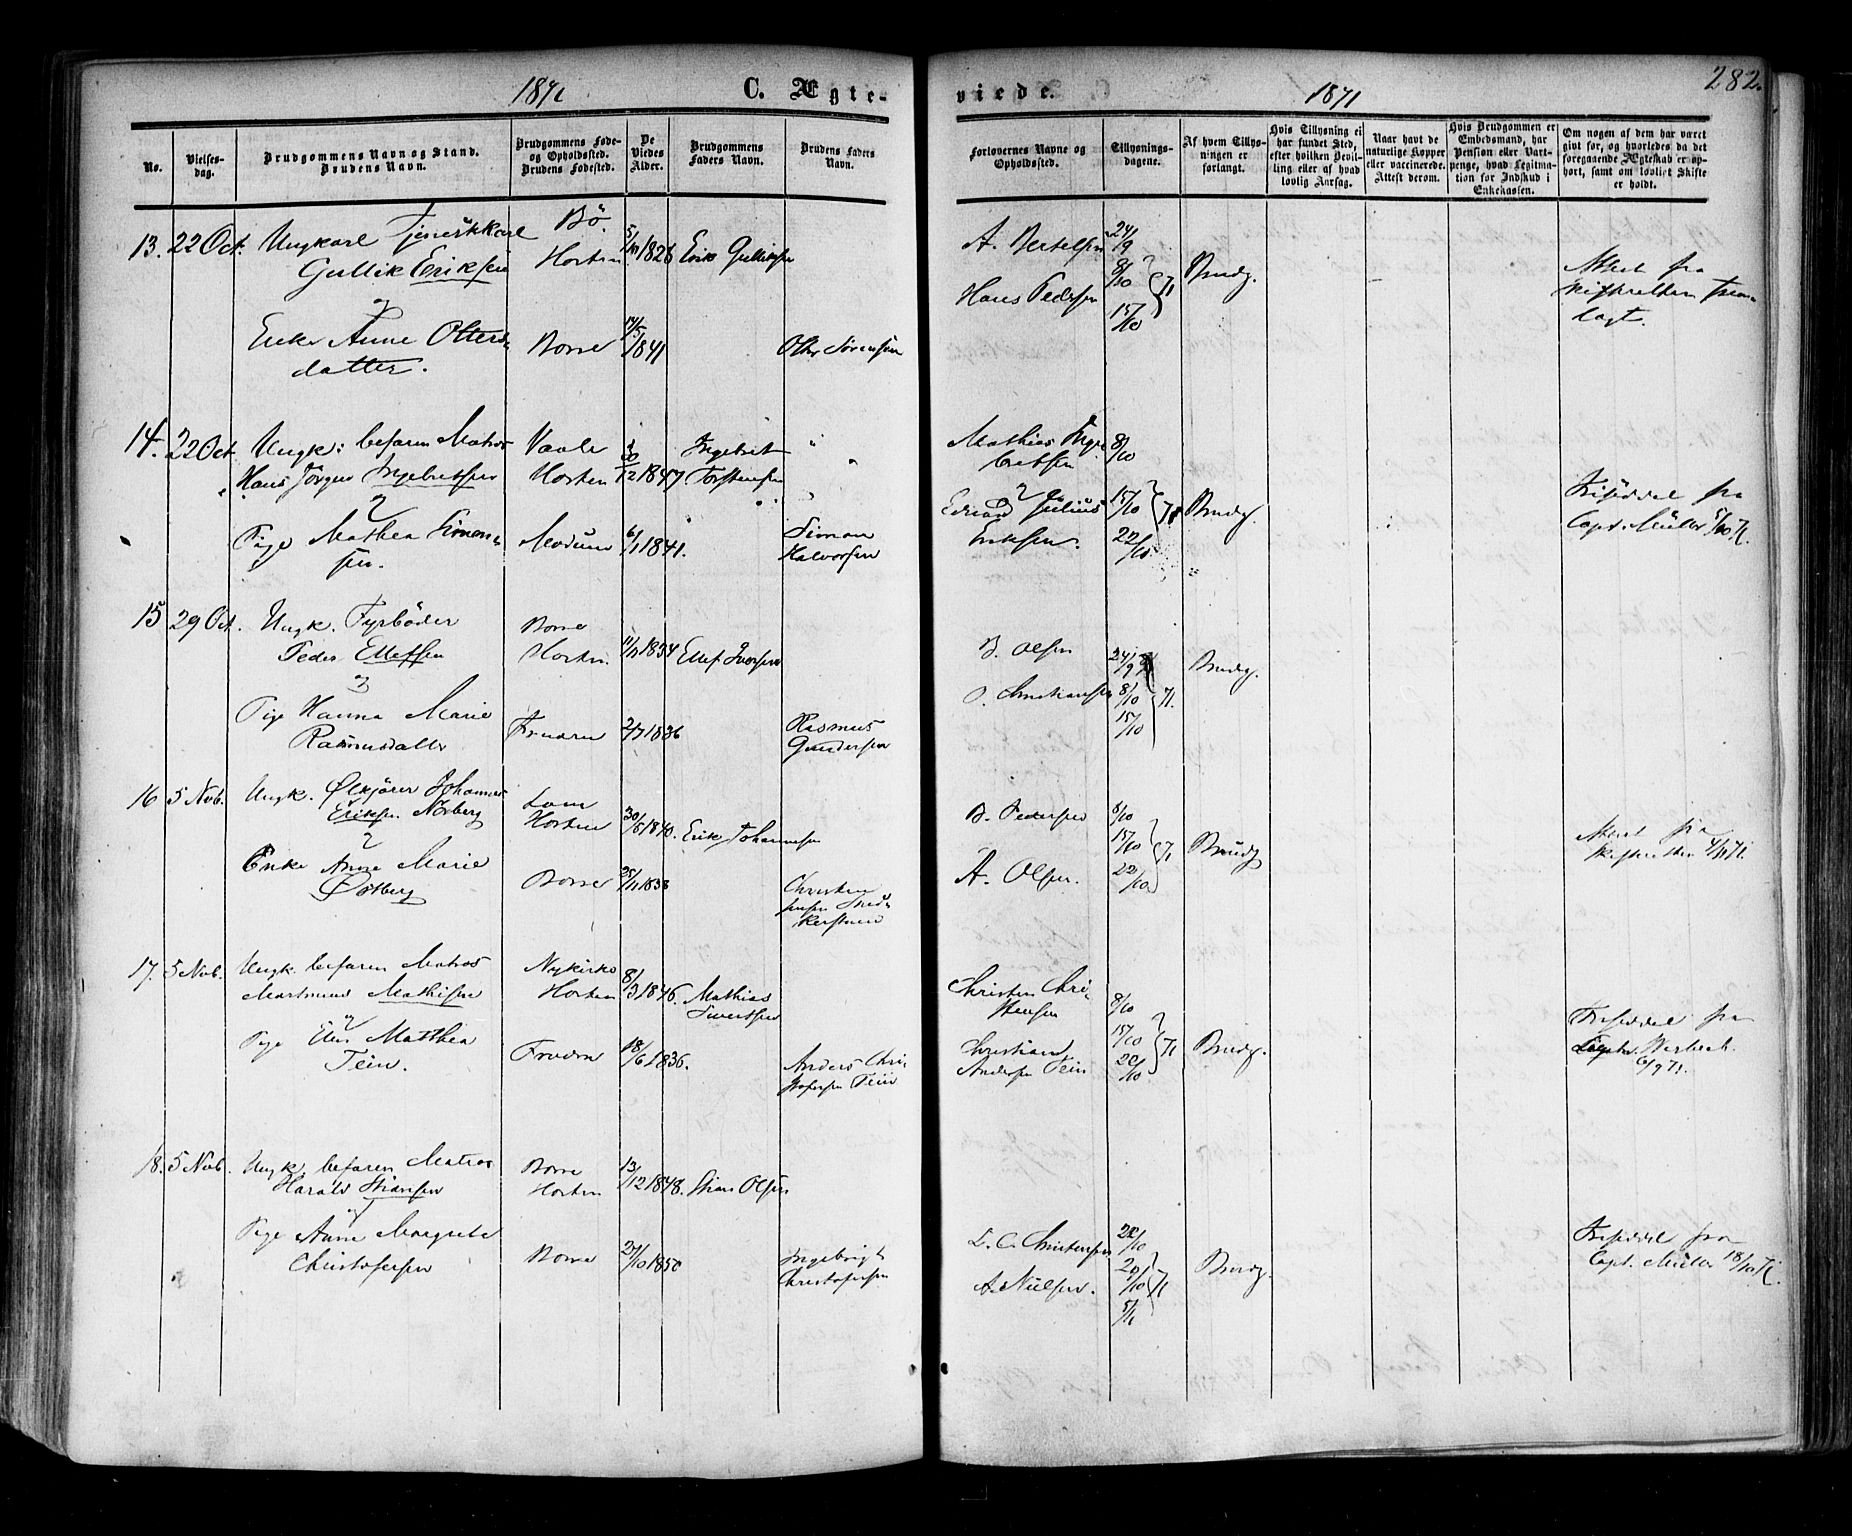 1871 C. Ægte-
viede. 1871 282.
No.
Vielses-
dag.
Brudgommens Navn og Stand.
Brudens Navn.
Brudgommens Føde-
og Opholdssted.
Brudens Fødested.
De
Viedes
Alder.
Brudgommens
Faders Navn.
Brudens Faders
Navn.
Forlovernes Navne og
Opholdssted.
Tillysnings-
dagene.
Af hvem Tillys-
ningen er
forlangt.
Hvis Tillysning ei
har fundet Sted,
efter hvilken Bevil-
ling eller af hvad
lovlig Aarsag.
Naar havt de
naturlige Kopper
eller vaccinerede.
Attest derom.
Hvis Brudgommen er
Embedsmand, har
Pension eller Vart-
penge, hvad Legitima-
tion for Indskud i
Enkekassen.
Om nogen af dem har været
givt før, og hvorledes da det
foregaaende Ægteskab er op-
hørt, samt om lovligt Skifte
er holdt.
13. 22 Oct. Ungkarl Tjenestkarl
Gullik Eriksen
Bø.
Horten 1826 Erik Gulliksen
Enke Anne Otters-
datter.
Borre 14/5 1841 Otter Sørensen
A. Bertelsen
Hans Pedersen
24/9
8/10
15/10 71 Brudg.
Attest fra
Skifteretten frem-
lagt.
14. 22 Oct. Ungk: befaren Matros
Hans Jørgen Ingebretsen
Vaale
Horten 12 1847 Ingebret
Torstensen
Pige Mathea Simon-
sen.
Modum 6/1 1841. Simon
Halvorsen
Mathias Inge-
bretsen
Edvard Julius
Eriksen.
8/10
15/10
22/10 71 Brudg.
Friseddel fra
Capt. Müller 5/10 71.
15 29 Oct. Ungk. Fyrbøder
Peder Ellefsen
Borre
Horten 1834 Ellef Iversen
Pige Hanna Marie
Rasmusdatter
Fruden 2/7 1836 Rasmus
Gundersen
B. Olsen
O. Christiansen
24/9
8/10
15/10 71. Brudg.
16 5 Nov. Ungk. Ølkjører Johannes
Eriksen Norberg
Lom
Horten 30/5 1840. Erik Johannesen
Enke Anne Marie
Østberg
Borre 25/11 1838 Christen
B. Pedersen
A. Olsen.
8/10
15/10
22/10 71 Brudg
Attest fra
Skifteretten 4/11 71.
17. 5 Nov. Ungk. befaren Matros
Martinius Mathisen
Nykirke
Horten 8/3 1846. Mathias
Sivertsen
Pige Elen Matthea
Tein.
Fruden 18/6 1836. Anders Chri-
stofersen Tein
Christen Chri-
stensen
Christian
Andersen Tein
8/10
15/10
22/10 71 Brudg.
Friseddel fra
6/9 71.
18. 5 Nov. Ungk. befaren Matros
Harald Stiansen
Borre
Horten 13/12 1848. Stian Olsen
Pige Anne Margrete
Christofersen
Borre 27/10 1850 Ingebrigt
Christofersen
L. C. Christensen
A. Nielsen.
22/10
29/10
5/11 71 Brudg.
Friseddel fra
Capt. Müller 18/10 71.